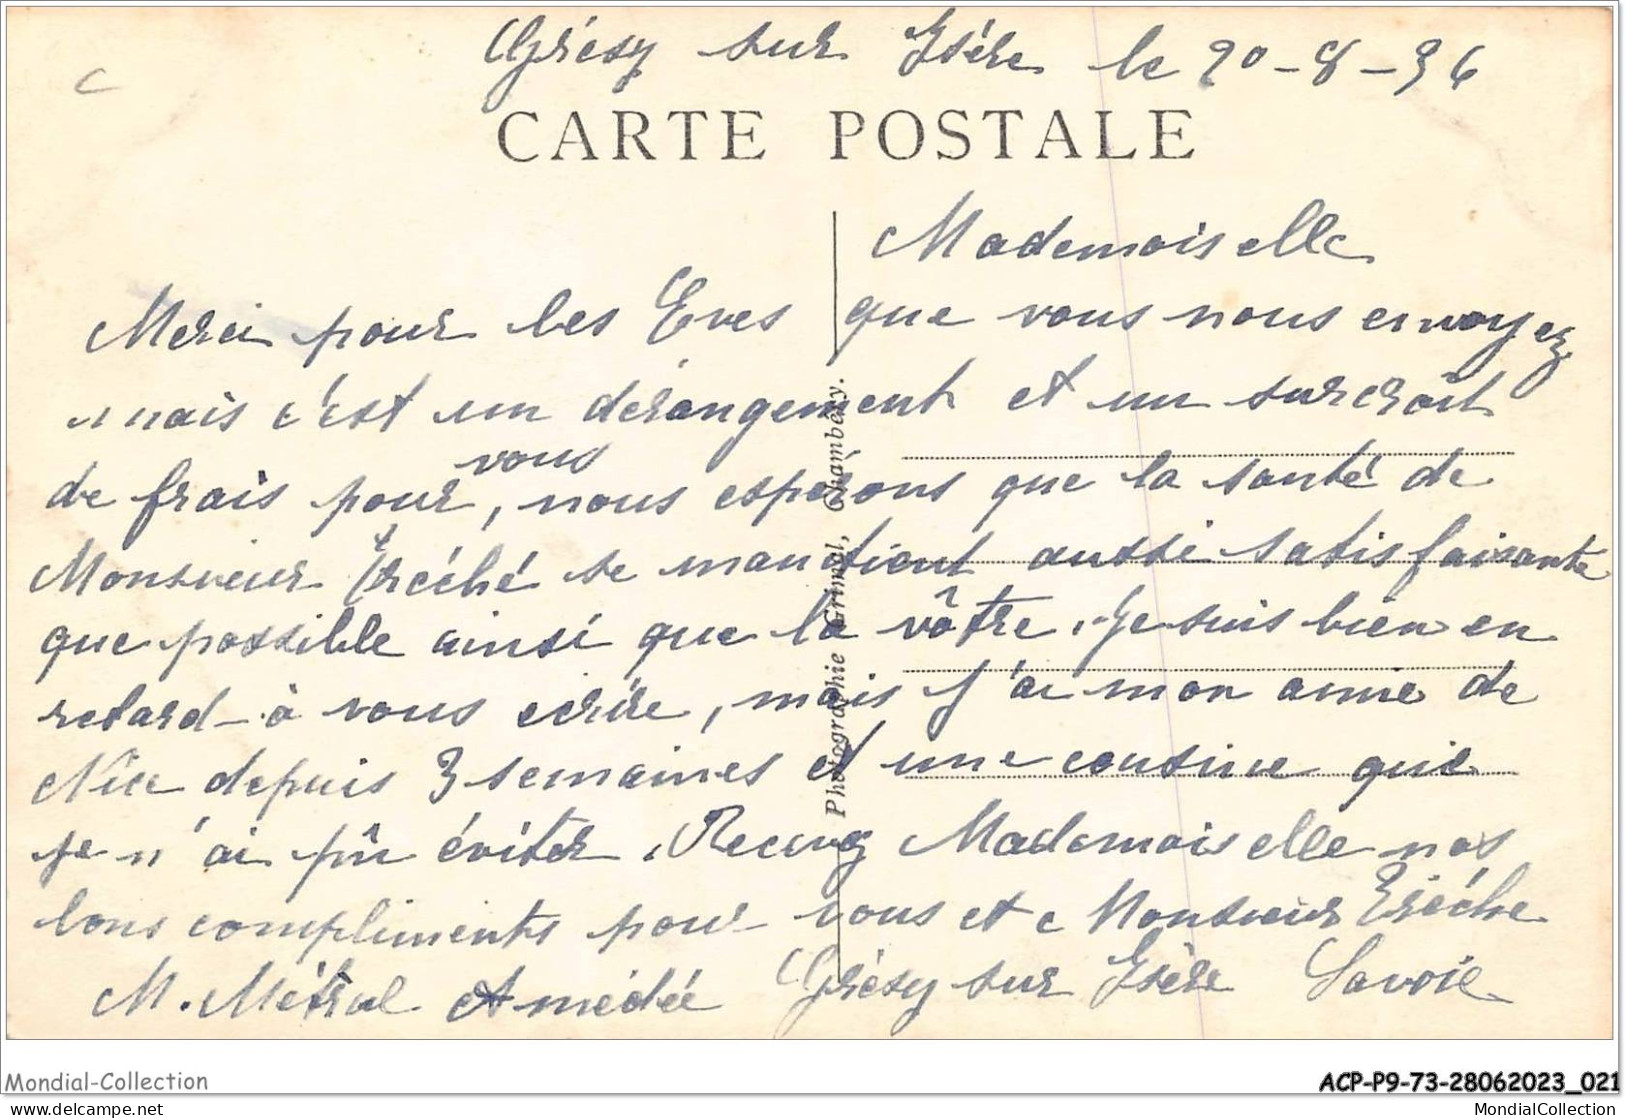 Grésy sur Isère le 20-8-36
C
CARTE POSTALE
Mademoiselle
Merci pour les Eves que vous nous envoyez
mais c'est un dérangement et un surcroit
vous
de frais pour, nous espérons que la santé de
Monsieur Tréché se maintient aussi satisfaisante
que possible ainsi que la vôtre. Je suis bien en
retard à vous écrire, mais j'ai mon amie de
Nice depuis 3 semaines et une cousine que
je n'ai pû éviter. Recevez Mademoiselle nos
bons compliments pour vous et Monsieur Tréché
M. Métral Amédée Grésy sur Isère Savoie
Photographie Grimal, Chambéry.
Mondial-Collection
ACP-P9-73-28062023_021
www.delcampe.net
MondialCollection